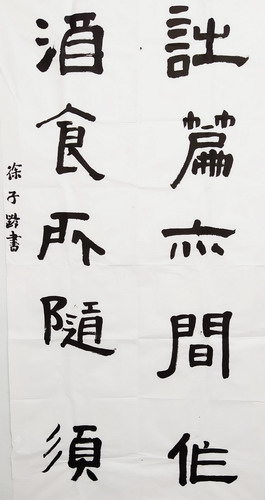 詩篇亦間作
酒食所隨須
徐子書